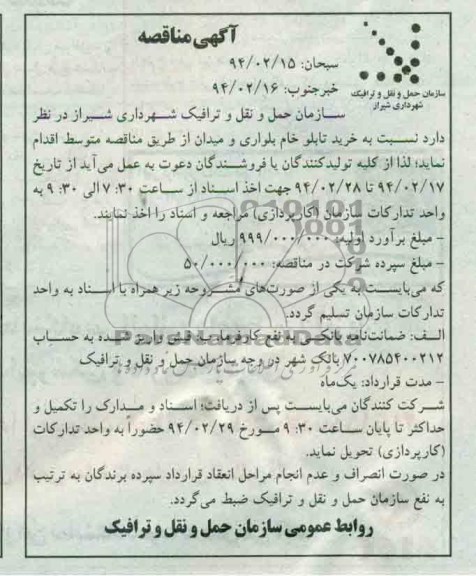 آگهی مناقصه
سبحان: ۹۴/۰۲/۱۵
خبرجنوب: ۹۴/۰۲/۱۶
سازمان حمل و نقل و ترافیک
شهرداری شیراز
سازمان حمل و نقل و ترافیک شهرداری شیراز در نظر
دارد نسبت به خرید تابلو خام بلواری و میدان از طریق مناقصه متوسط اقدام
نماید؛ لذا از کلیه تولیدکنندگان یا فروشندگان دعوت به عمل می‌آید از تاریخ
۹۴/۰۲/۱۷ تا ۹۴/۰۲/۲۸ جهت اخذ اسناد از ساعت ۷:۳۰ الی ۹:۳۰ به
واحد تدارکات سازمان (کارپردازی) مراجعه و اسناد را اخذ نمایند.
- مبلغ برآورد اولیه: ۹۹۹/۰۰۰/۰۰۰ ریال
- مبلغ سپرده شرکت در مناقصه: ۵۰/۰۰۰/۰۰۰
که می‌بایست به یکی از صورت‌های مشروحه زیر همراه با اسناد به واحد
تدارکات سازمان تسلیم گردد.
الف: ضمانت‌نامه بانکی به نفع کارفرما ب: فیش واریز شده به حساب
۷۰۰۷۸۵۴۰۰۲۱۲ بانک شهر در وجه سازمان حمل و نقل و ترافیک
- مدت قرارداد: یک‌ماه
شرکت کنندگان می‌بایست پس از دریافت؛ اسناد و مدارک را تکمیل و
حداکثر تا پایان ساعت ۹:۳۰ مورخ ۹۴/۰۲/۲۹ حضوراً به واحد تدارکات
(کارپردازی) تحویل نماید.
در صورت انصراف و عدم انجام مراحل انعقاد قرارداد سپرده برندگان به ترتیب
به نفع سازمان حمل و نقل و ترافیک ضبط می‌گردد.
روابط عمومی سازمان حمل و نقل و ترافیک